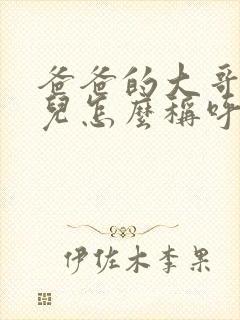 爸爸的大哥
兒怎麼稱呼
伊佐木李果